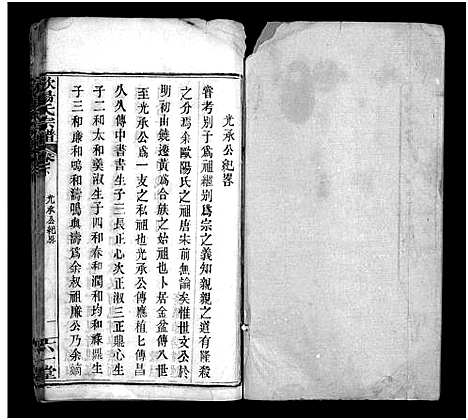 光承公紀畧
嘗考别子為祖繼别為宗之義知親親之道有隆殺
之分焉余歐陽氏之祖唐宋前無論矣惟世文公於
明初由饒遷黄為合族之始祖也卜居金盆傳八世
至光承公為一支之私祖也光承公傳應植七傳
久久傳中書書生子三長正心次正淑三正鼎心生
子二和太和羹淑生子四和春和潤和均和祿鼎生
子三和廉和鳴和濤鳴與濤為余叔祖廉公乃余嫡
歐陽氏宗譜
光承公紀畧
一
六一堂